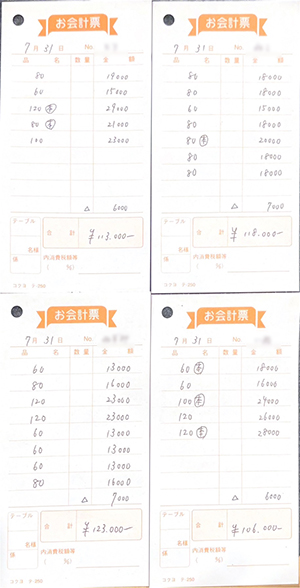 お会計票
7月31日 No
品名 数量 金額
80 19000
60 15000
120 ㊍ 29000
80 21000
100 23000
△ 6000
テーブル
名様
係
合計 ¥113.000-
内消費税額等
( %)
コクヨ
お会計票
7月31日 No
品名 数量 金額
80 18000
80 18000
60 15000
80 18000
80 20000
80 18000
80 18000
△ 7000
テーブル
名様
係
合計 ¥118.000-
内消費税額等
( %)
コクヨ
お会計票
7月31日 No
品名 数量 金額
60 13000
80 16000
120 23000
120 23000
60 13000
60 13000
60 13000
80 16000
△ 7000
テーブル
名様
係
合計 ¥123.000-
内消費税額等
( %)
コクヨ
お会計票
7月31日 No
品名 数量 金額
60 18000
60 16000
100 24000
120 26000
120 28000
△ 6000
テーブル
名様
係
合計 ¥106.000-
内消費税額等
( %)
コクヨ